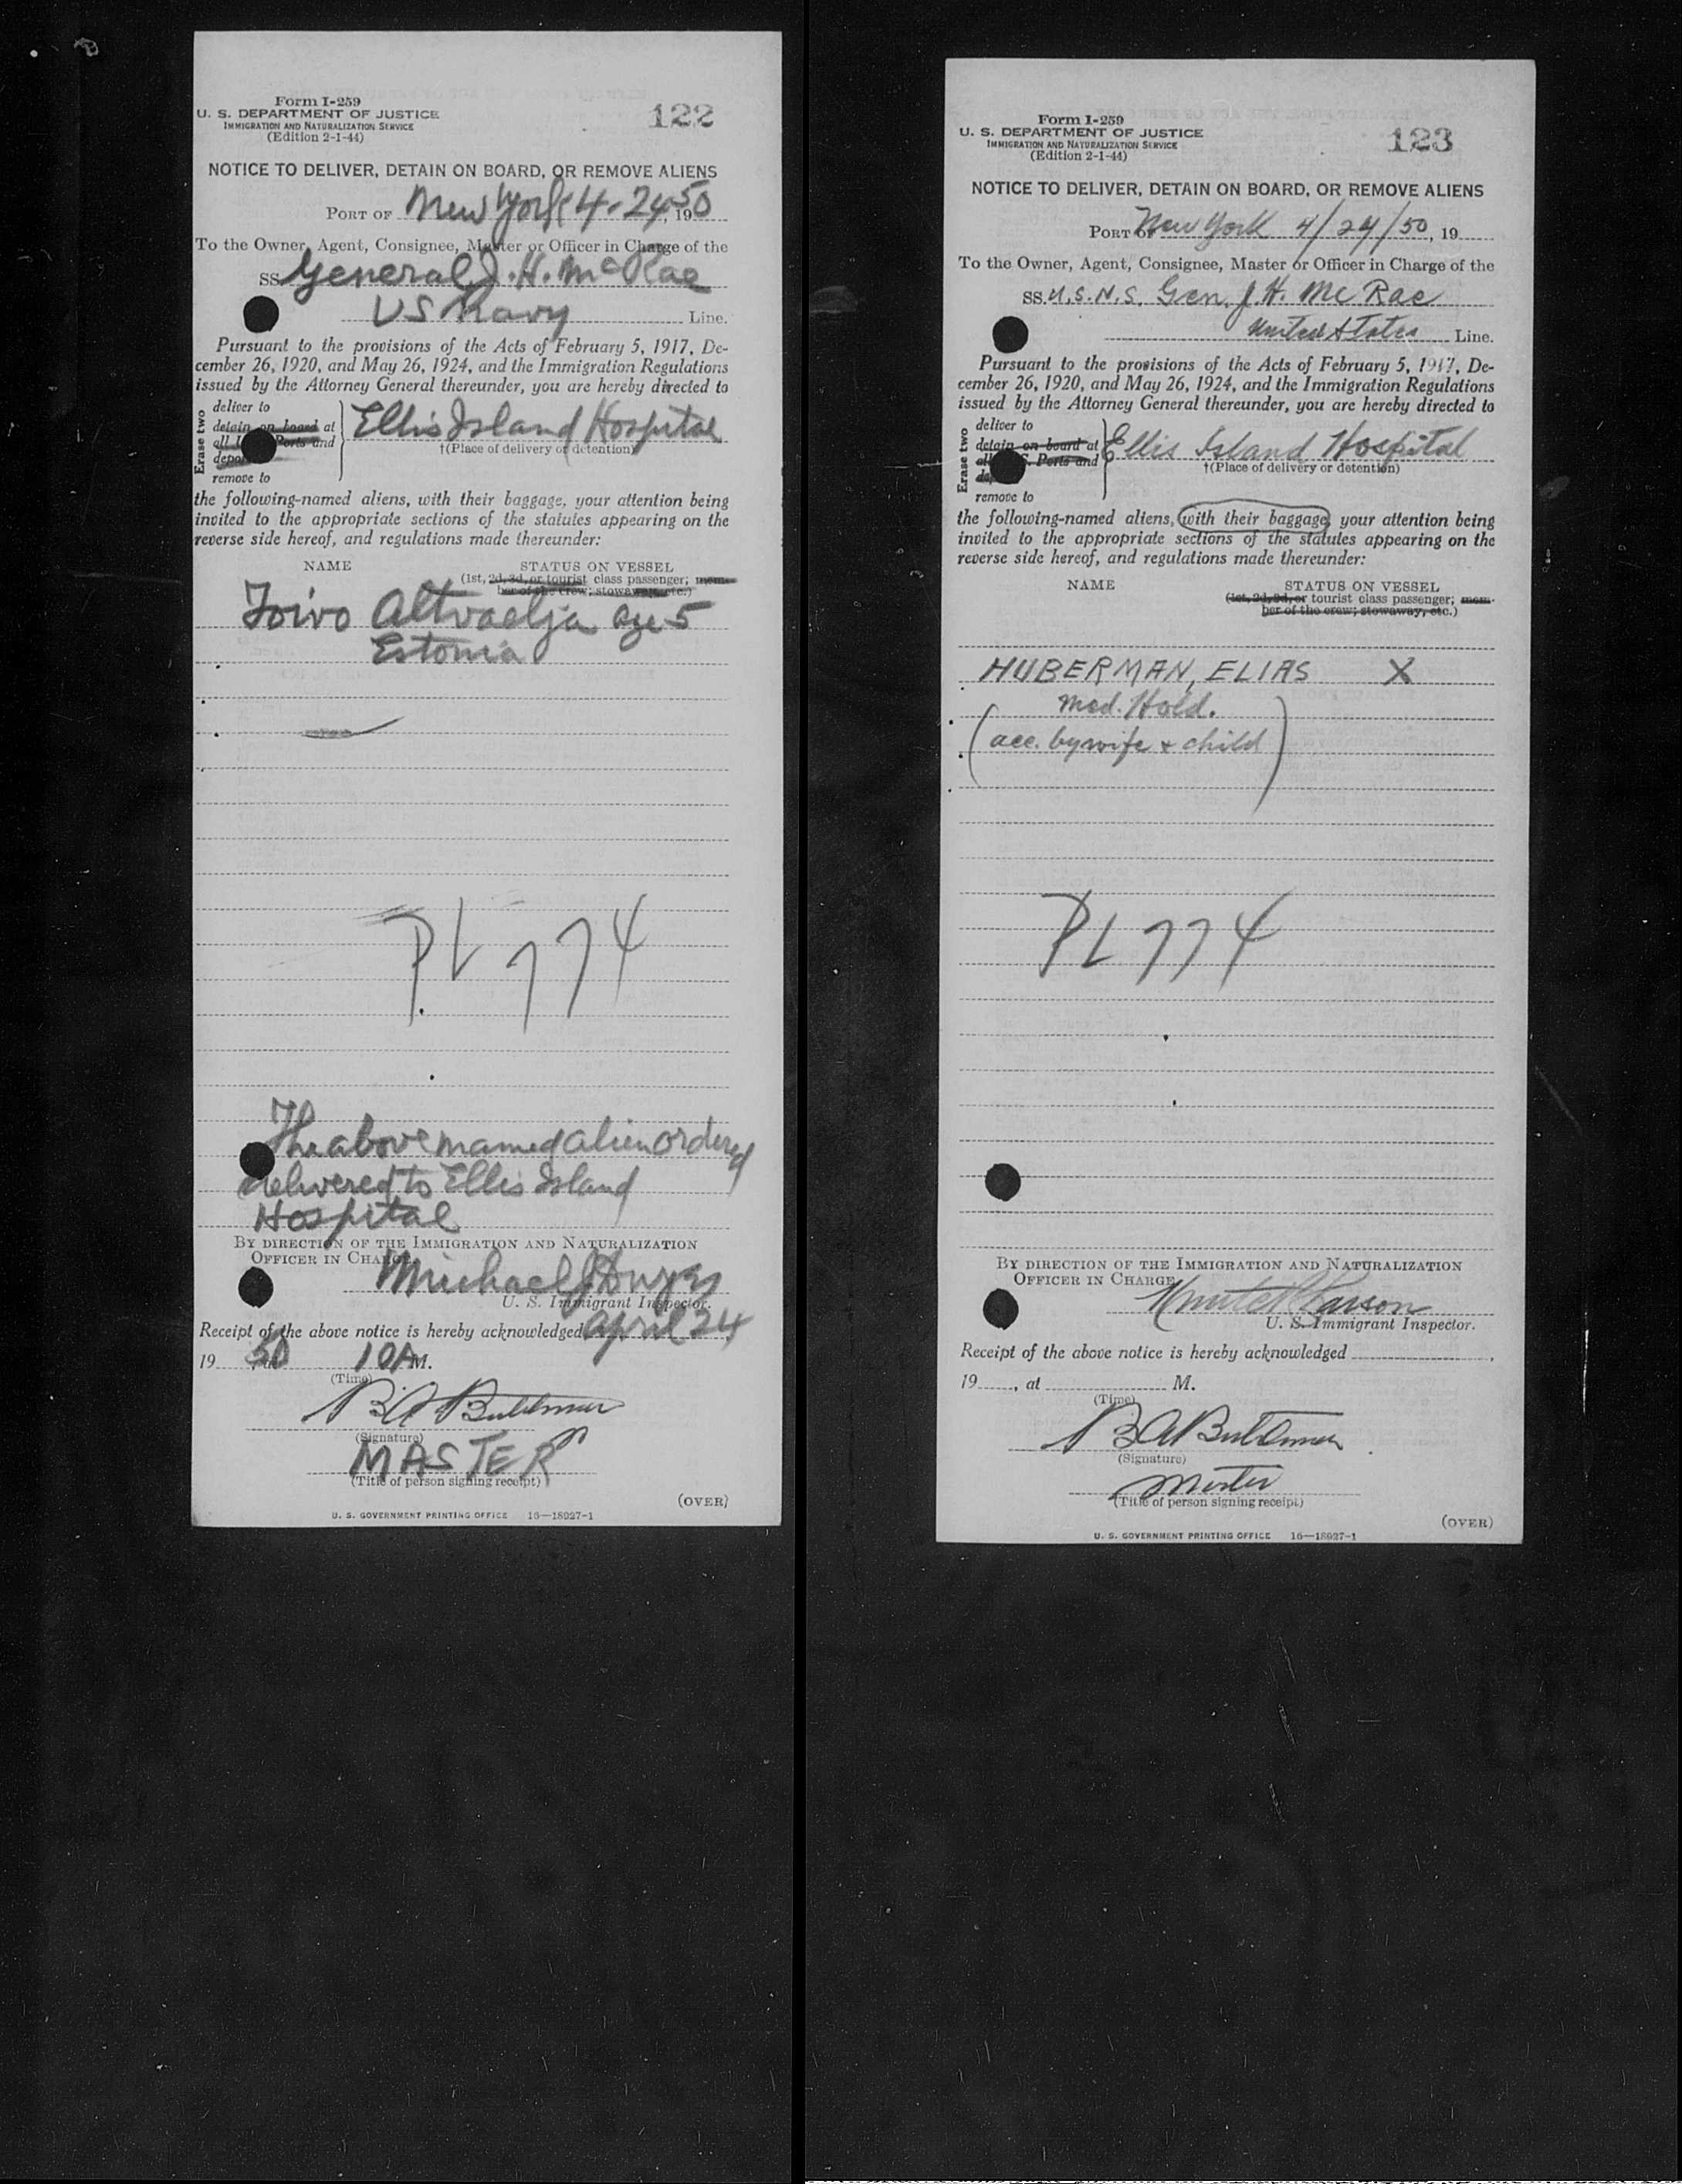 Form I-259
U. S. DEPARTMENT OF JUSTICE
IMMIGRATION AND NATURALIZATION SERVICE
(Edition 2-1-44)
122
NOTICE TO DELIVER, DETAIN ON BOARD, OR REMOVE ALIENS
PORT OF New York 4-24, 1950
To the Owner, Agent, Consignee, Master or Officer in Charge of the
SS General J. H. McRae
US Navy Line.
Pursuant to the provisions of the Acts of February 5, 1917, De-
cember 26, 1920, and May 26, 1924, and the Immigration Regulations
issued by the Attorney General thereunder, you are hereby directed to
Erase two
deliver to
detain on board at
all Ports and
remove to
Ellis Island Hospital
†(Place of delivery or detention)
the following-named aliens, with their baggage, your attention being
invited to the appropriate sections of the statutes appearing on the
reverse side hereof, and regulations made thereunder:
NAME STATUS ON VESSEL
(1st, 2d, 3d, or tourist class passenger; mem-
ber of the crew; stowaway, etc.)
Toivo Altvaelja age 5
Estonia
P.L 774
The above named alien ordered
delivered to Ellis Island
Hospital
BY DIRECTION OF THE IMMIGRATION AND NATURALIZATION
OFFICER IN CHARGE
Michael J
U. S. Immigrant Inspector.
Receipt of the above notice is hereby acknowledged April 24
19 50 10 A M.
(Time)
(Signature)
MASTER
(Title of person signing receipt)
(OVER)
U. S. GOVERNMENT PRINTING OFFICE 16—18027-1
Form I-259
U. S. DEPARTMENT OF JUSTICE
IMMIGRATION AND NATURALIZATION SERVICE
(Edition 2-1-44)
123
NOTICE TO DELIVER, DETAIN ON BOARD, OR REMOVE ALIENS
PORT OF New York 4/24/50, 19
To the Owner, Agent, Consignee, Master or Officer in Charge of the
SS. U.S.N.S. Gen. J. H. McRae
United States Line.
Pursuant to the provisions of the Acts of February 5, 1917, De-
cember 26, 1920, and May 26, 1924, and the Immigration Regulations
issued by the Attorney General thereunder, you are hereby directed to
Erase two
deliver to
detain on board at
S. Ports and
remove to
Ellis Island Hospital
†(Place of delivery or detention)
the following-named aliens, with their baggage, your attention being
invited to the appropriate sections of the statutes appearing on the
reverse side hereof, and regulations made thereunder:
NAME STATUS ON VESSEL
(1st, 2d, 3d, or tourist class passenger; mem-
ber of the crew; stowaway, etc.)
HUBERMAN, ELIAS X
Med. Hold.
(acc. by wife + child)
PL 774
BY DIRECTION OF THE IMMIGRATION AND NATURALIZATION
OFFICER IN CHARGE
U. S. Immigrant Inspector.
Receipt of the above notice is hereby acknowledged ,
19 , at M.
(Time)
(Signature)
Master
(Title of person signing receipt.)
(OVER)
U. S. GOVERNMENT PRINTING OFFICE 16—18027-1